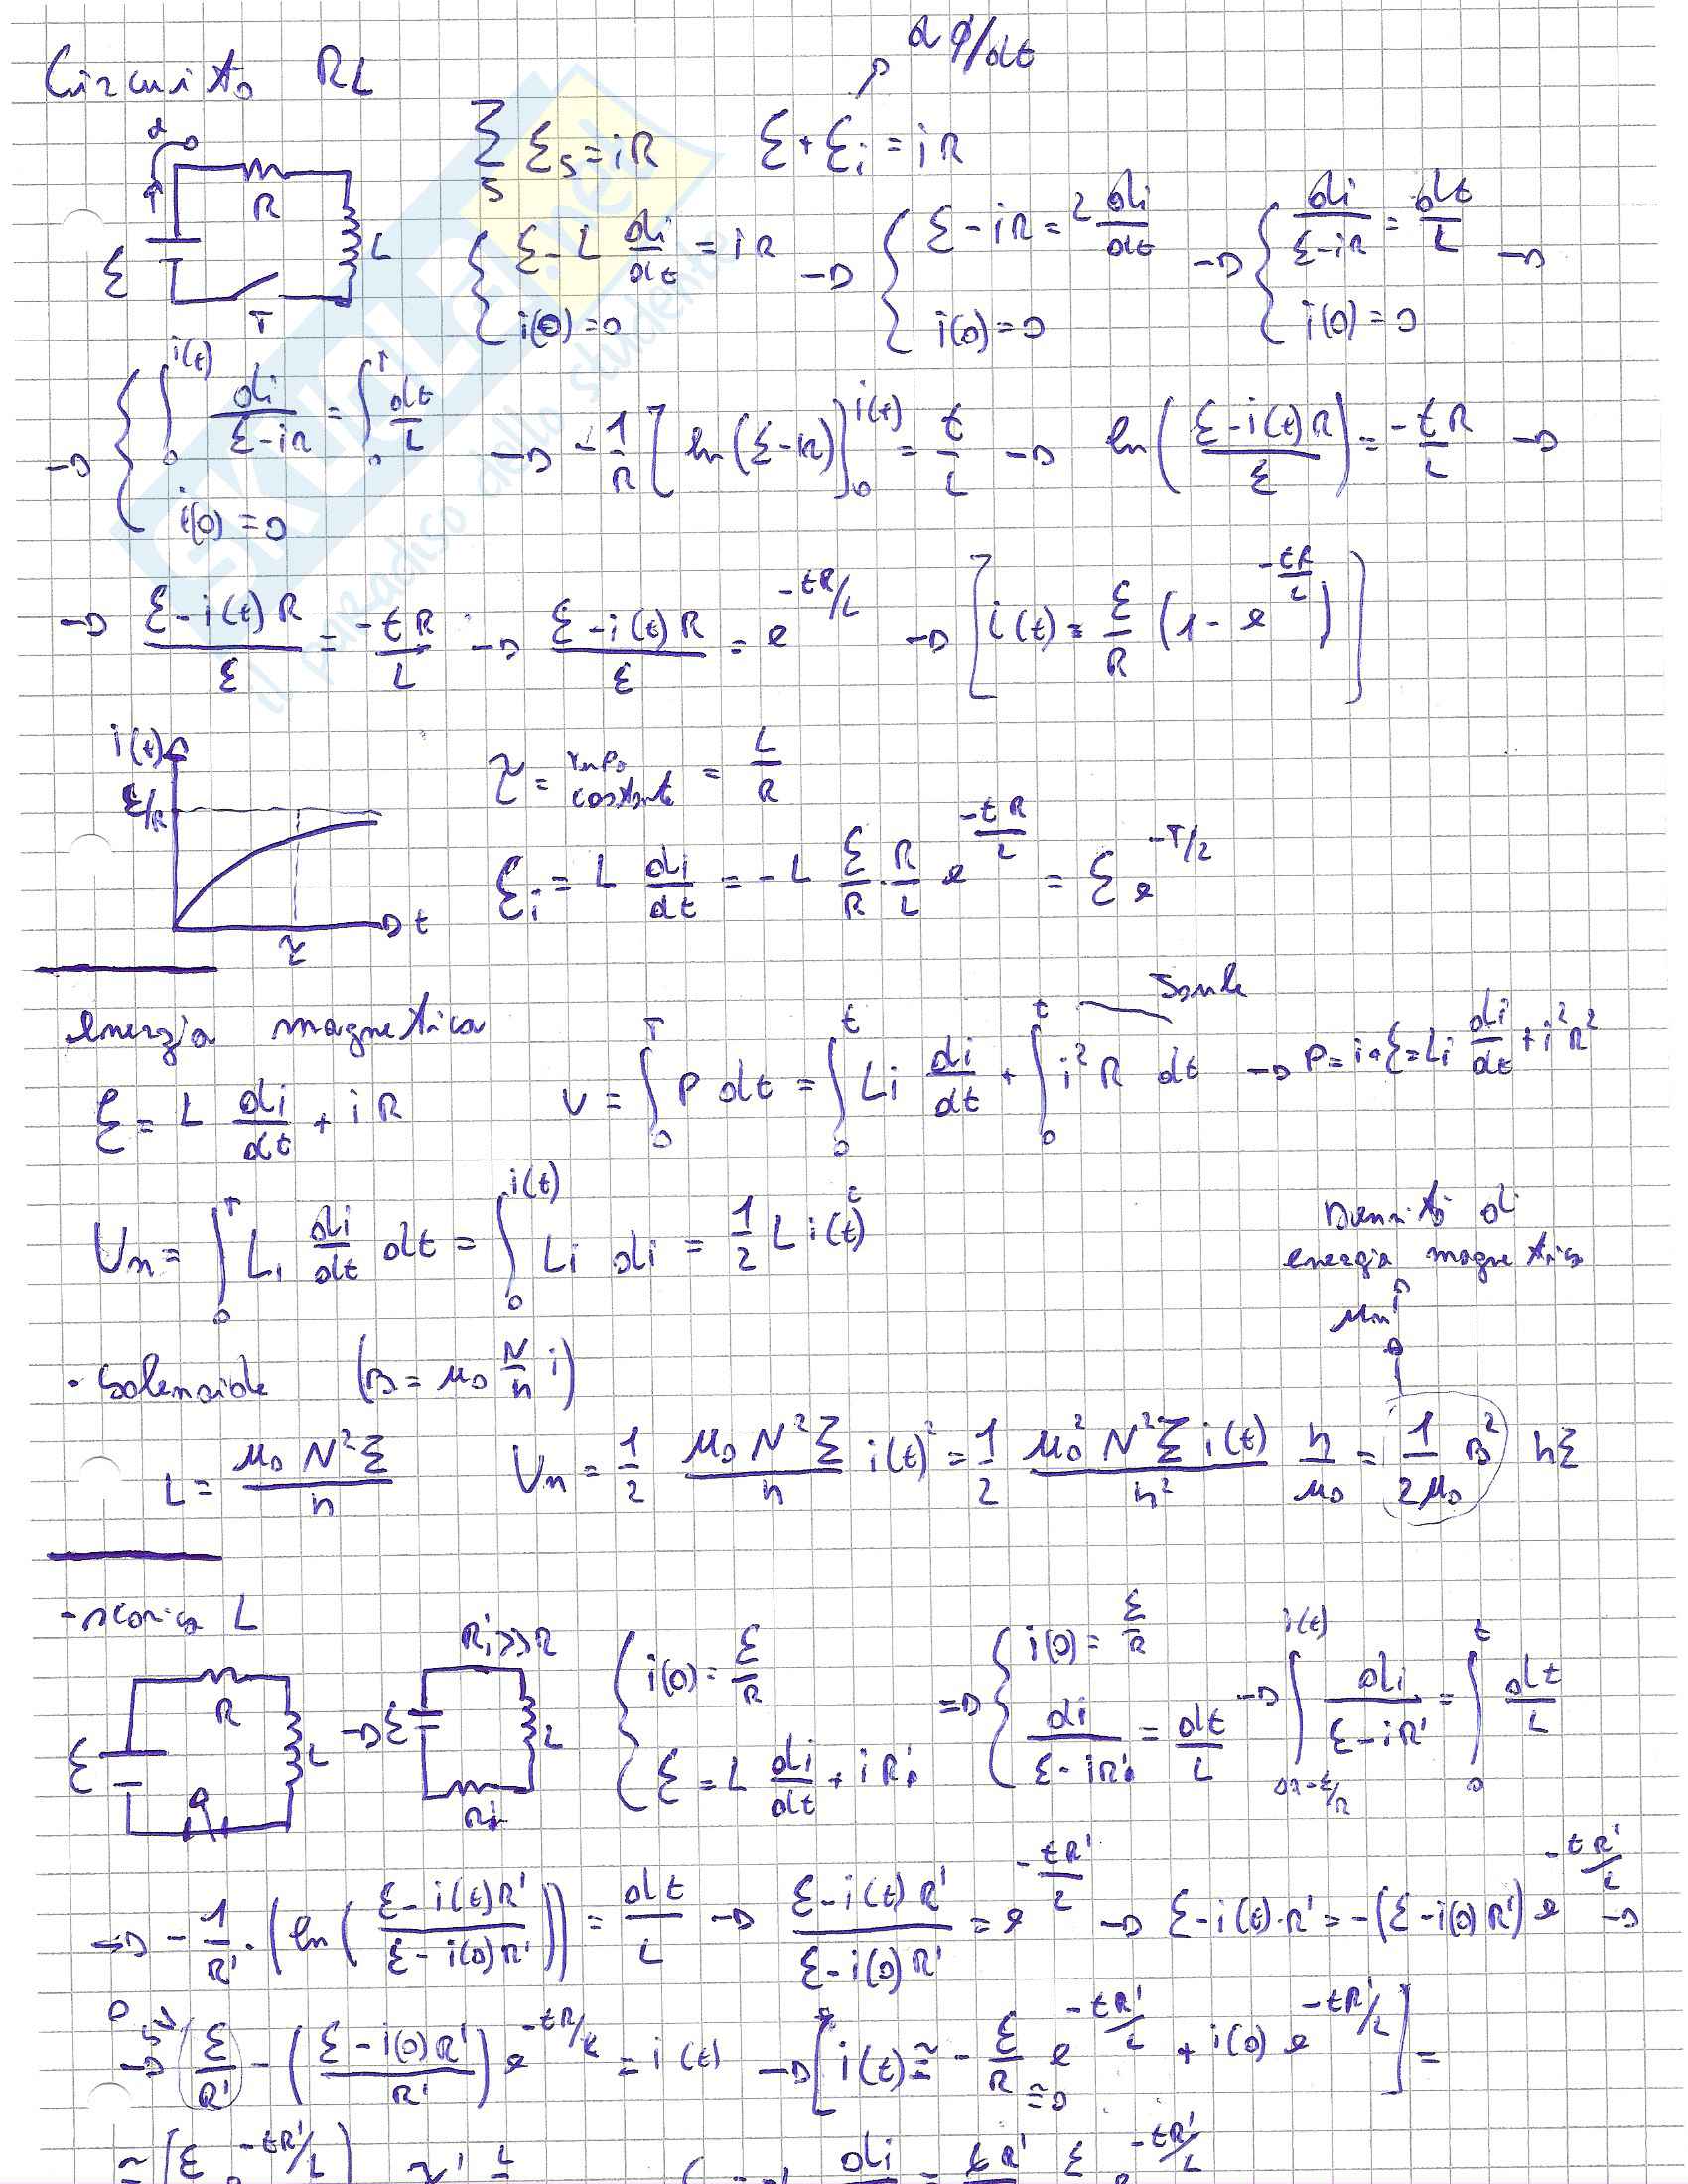 Circuito RL
dϕ/dt
∑_s ℰ_s = iR    ℰ + ℰ_i = iR
R
ℰ
L
T
{ ℰ - L di/dt = iR , i(0) = 0 → { ℰ - iR = L di/dt , i(0) = 0 → { di/(ℰ - iR) = dt/L , i(0) = 0 →
→ { ∫_0^{i(t)} di/(ℰ - iR) = ∫_0^T dt/L , i(0) = 0 → -1/R [ln(ℰ - iR)]_0^{i(t)} = t/L → ln((ℰ - i(t)R)/ℰ) = -tR/L →
→ (ℰ - i(t)R)/ℰ = -tR/L → (ℰ - i(t)R)/ℰ = e^{-tR/L} → [i(t) = ℰ/R (1 - e^{-tR/L})]
i(t)
ℰ/R
t
τ
τ = tempo costante = L/R
ℰ_i = L di/dt = -L ℰ/R · R/L e^{-tR/L} = ℰ e^{-T/τ}
energia magnetica
Joule
ℰ = L di/dt + iR    U = ∫_0^T P dt = ∫_0^t Li di/dt + ∫_0^t i²R dt → P = i·ℰ = Li di/dt + i²R²
U_m = ∫_0^T Li di/dt dt = ∫_0^{i(t)} Li di = 1/2 L i(t)²
Densità di
energia magnetica
u_m
- Solenoide (B = μ0 N/h i)
L = μ0 N² Σ / h    U_m = 1/2 μ0 N² Σ / h i(t)² = 1/2 μ0² N² Σ i(t) / h² h/μ0 = 1/(2μ0) B² hΣ
- scarica L
R
ℰ
L
→ ℰ
R_i >> R
L
R_i
{ i(0) = ℰ/R , ℰ = L di/dt + iR' ⇒ { i(0) = ℰ/R , di/(ℰ - iR') = dt/L → ∫^{i(t)} di/(ℰ - iR') = ∫_0^t dt/L
→ -1/R' · (ln((ℰ - i(t)R')/(ℰ - i(0)R'))) = dt/L → (ℰ - i(t)R')/(ℰ - i(0)R') = e^{-tR'/L} → ℰ - i(t)·R' = -(ℰ - i(0)R') e^{-tR'/L} →
→ ℰ/R' - ((ℰ - i(0)R')/R') e^{-tR/L} = i(t) → [i(t) ≅ -ℰ/R e^{-tR'/L} + i(0) e^{-tR'/L}] =
≅0